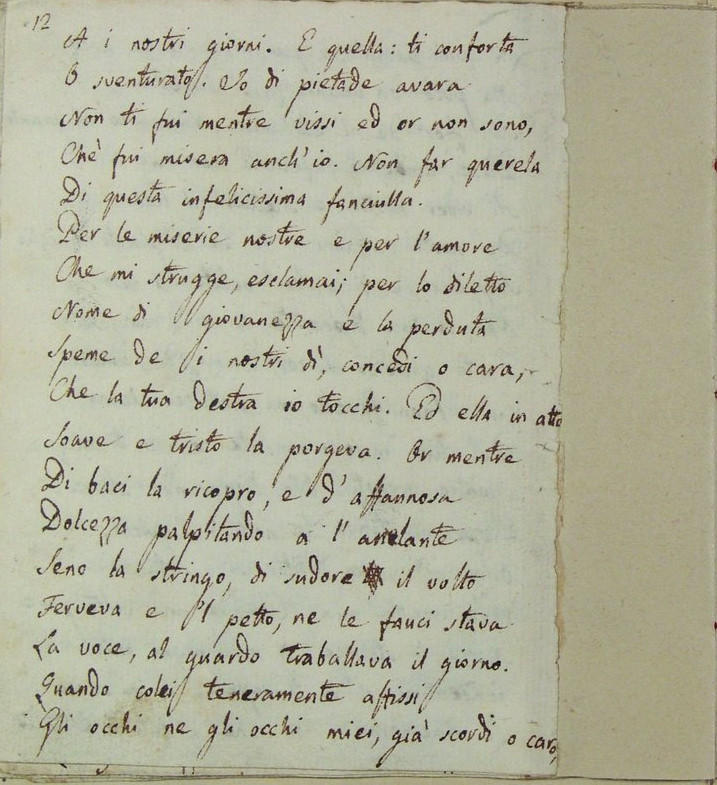 12
A i nostri giorni. E quella: ti conforta
O sventurato. Io di pietade avara
Non ti fui mentre vissi ed or non sono,
Chè fui misera anch'io. Non far querela
Di questa infelicissima fanciulla.
Per le miserie nostre e per l'amore
Che mi strugge, esclamai; per lo diletto
Nome di giovanezza e la perduta
Speme de i nostri dì, concedi o cara,
Che la tua destra io tocchi. Ed ella in atto
Soave e tristo la porgeva. Or mentre
Di baci la ricopro, e d'affannosa
Dolcezza palpitando a l'anelante
Seno la stringo, di sudore il volto
Ferveva e 'l petto, ne le fauci stava
La voce, al guardo traballava il giorno.
Quando colei teneramente affissi
Gli occhi ne gli occhi miei, già scordi o caro,